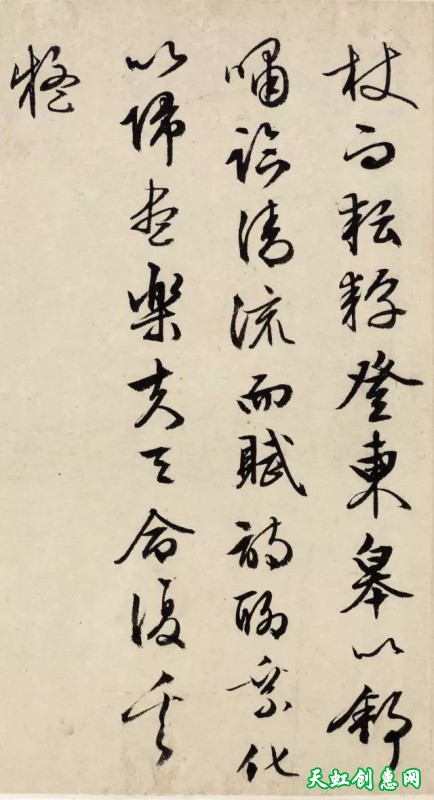 杖而耘耔登東皋以舒
嘯臨清流而賦詩聊乘化
以歸盡樂夫天命復奚
疑
天虹创惠网